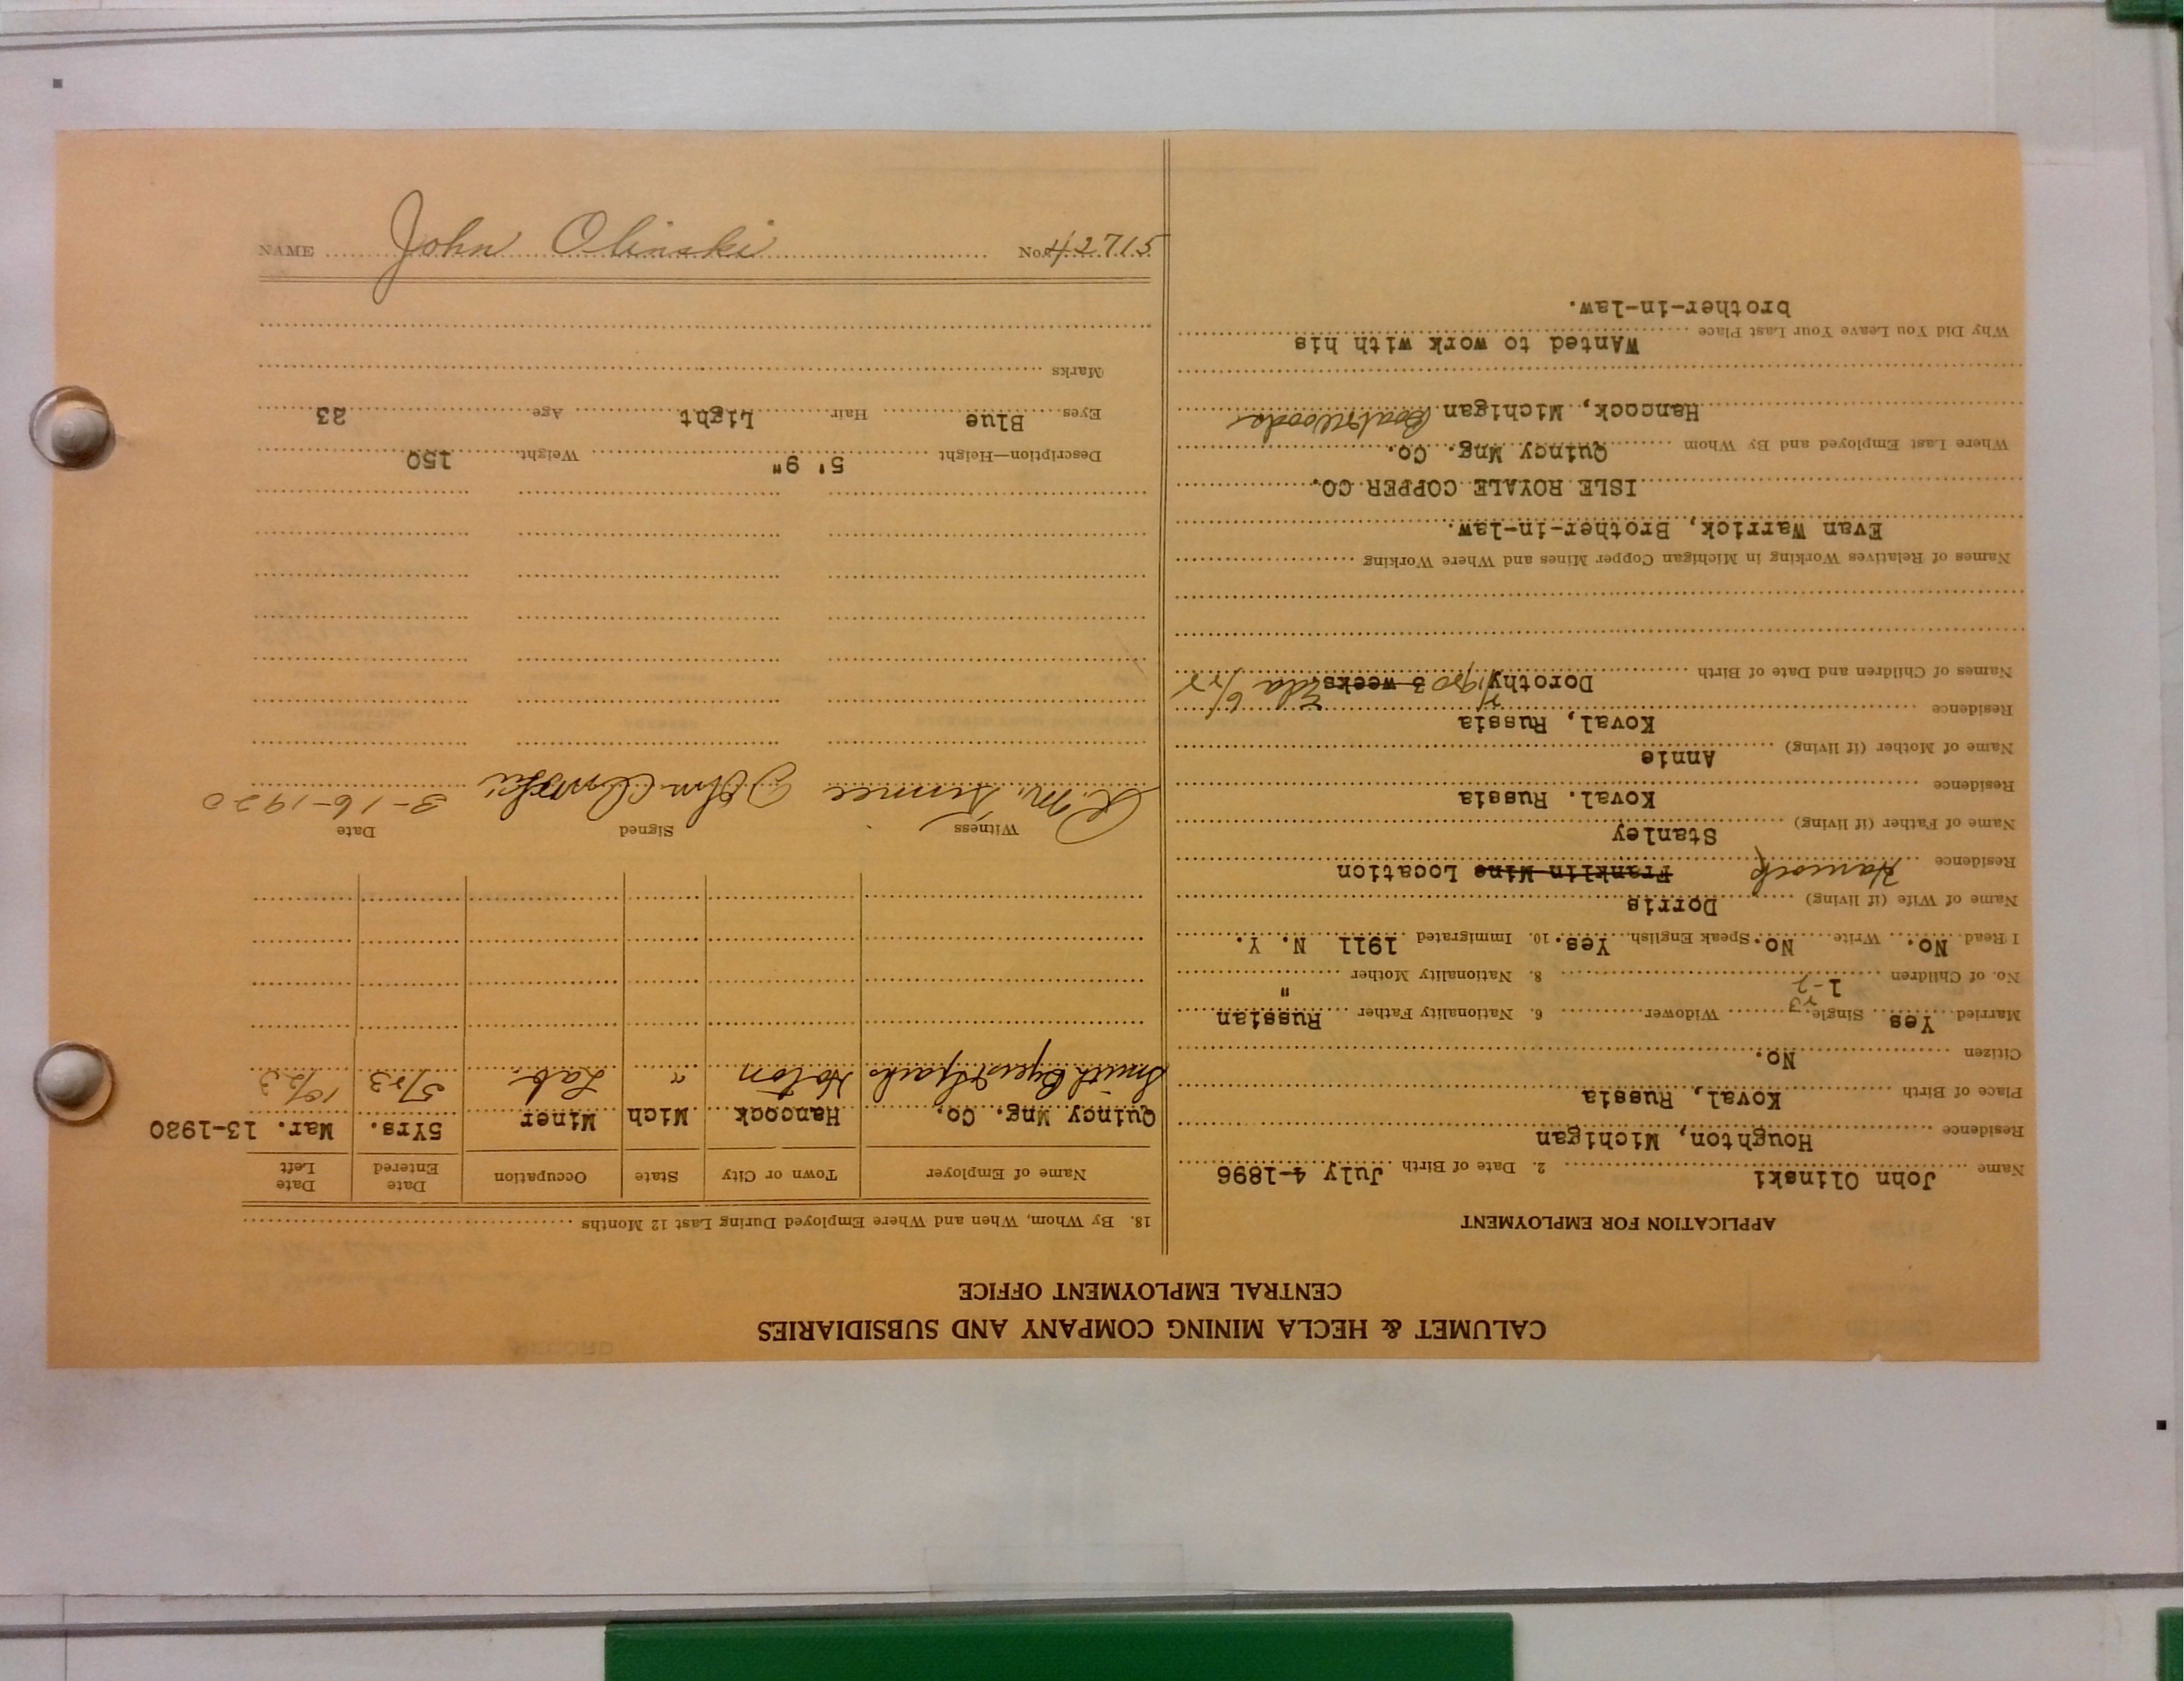 CALUMET & HECLA MINING COMPANY AND SUBSIDIARIES
CENTRAL EMPLOYMENT OFFICE
APPLICATION FOR EMPLOYMENT
Name John Olinski 2. Date of Birth July 4-1896
Residence Houghton, Michigan
Place of Birth Koval, Russia
Citizen No.
Married Yes Single Widower 6. Nationality Father Russian
No. of Children 1-2 8. Nationality Mother "
I Read No. Write No. Speak English. Yes. 10. Immigrated 1911 N. Y.
Name of Wife (if living) Dorris
Residence Hancock Franklin Mine Location
Name of Father (if living) Stanley
Residence Koval. Russia
Name of Mother (if living) Annie
Residence Koval, Russia
Names of Children and Date of Birth Dorothy 1920 3 weeks. Eda 6/22
Names of Relatives Working in Michigan Copper Mines and Where Working
Evan Warrick, Brother-in-law.
ISLE ROYALE COPPER CO.
Where Last Employed and By Whom Quincy Mng. Co.
Hancock, Michigan
Why Did You Leave Your Last Place WAnted to work with his
brother-in-law.
18. By Whom, When and Where Employed During Last 12 Months
Name of Employer Town or City State Occupation Date Entered Date Left
Quincy Mng. Co. Hancock Mich Miner 5Yrs. Mar. 13-1920
Smith Byers & Sparks Hoton " Lab. 5/23 10/23
Witness Signed Date
John Olinski 3-16-1920
Description—Height 5' 9" Weight 150
Eyes Blue Hair Light Age 23
Marks
NAME John Olinski No. 42715